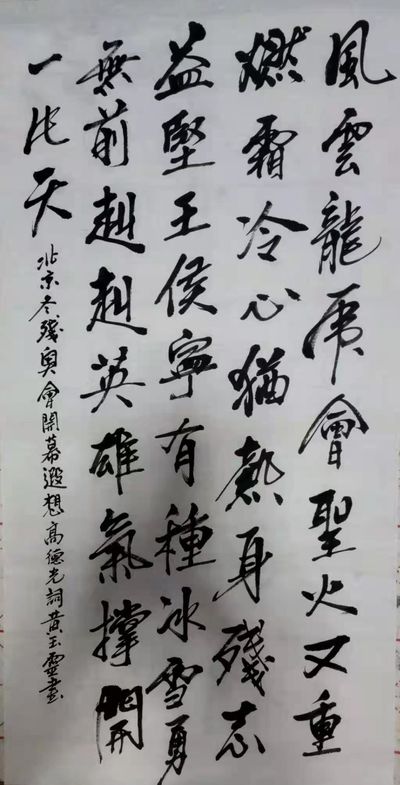 風雲龍虎會聖火又重
燃霜冷心猶熱身殘志
益堅王侯寧有種冰雪勇
無前赳赳英雄氣撐開
一片天
北京冬殘奧會開幕遐想高德光詞黄玉書